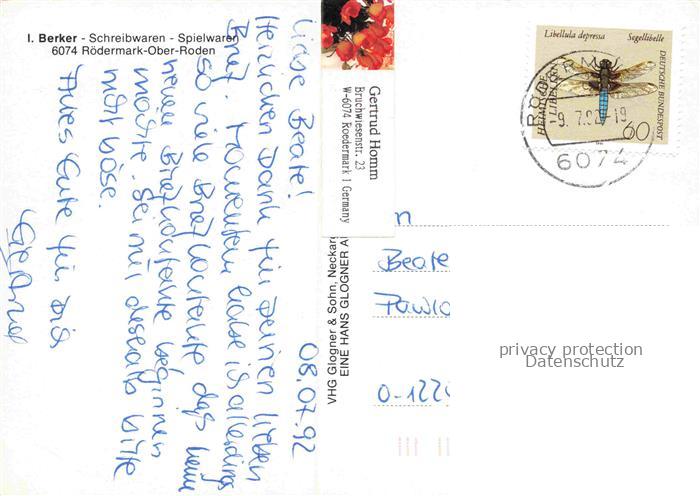 I. Berker - Schreibwaren - Spielwaren
6074 Rödermark-Ober-Roden
08.07.92
Liebe Beate!
Herzlichen Dank für Deinen lieben
Brief. Momentan habe ich allerdings
so viele Brieffreunde das keine
neuen Brieffreunde beginnen
möchte. Sei mir deshalb bitte
nicht böse.
Alles Gute für Dich
Gertrud
Gertrud Homm
Bruchwiesenstr. 23
W-6074 Roedermark 1 Germany
VHG Glogner & Sohn, Neckar
EINE HANS GLOGNER A
Libellula depressa Segellibelle
HEIMISCHE
LIBELLEN
DEUTSCHE BUNDESPOST
60
9.7.92-19
6074
n
Beate
Pawlo
O-122
privacy protection
Datenschutz